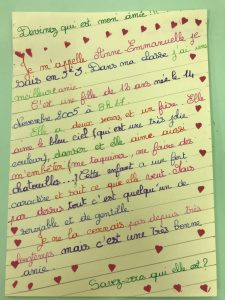 Devinez qui est mon amie !!
Je m'appelle Anne-Emmanuelle je
suis en 5e3. Dans ma classe j'ai une
meilleure amie.
C'est une fille de 12 ans née le 14
Novembre 2005 à 8h47.
Elle a deux sœurs et un frère. Elle
aime le bleu ciel (qui est une très jolie
couleur), danser et elle aime aussi
m'embêter (me taquiner, me faire des
chatouilles...) Cette enfant a un fort
caractère et tout ce que elle veut mais
par dessus tout c'est quelqu'un de
serviable et de gentille.
Je ne la connais pas depuis très
longtemps mais c'est une très bonne
amie.
Savez-vous qui elle est ?